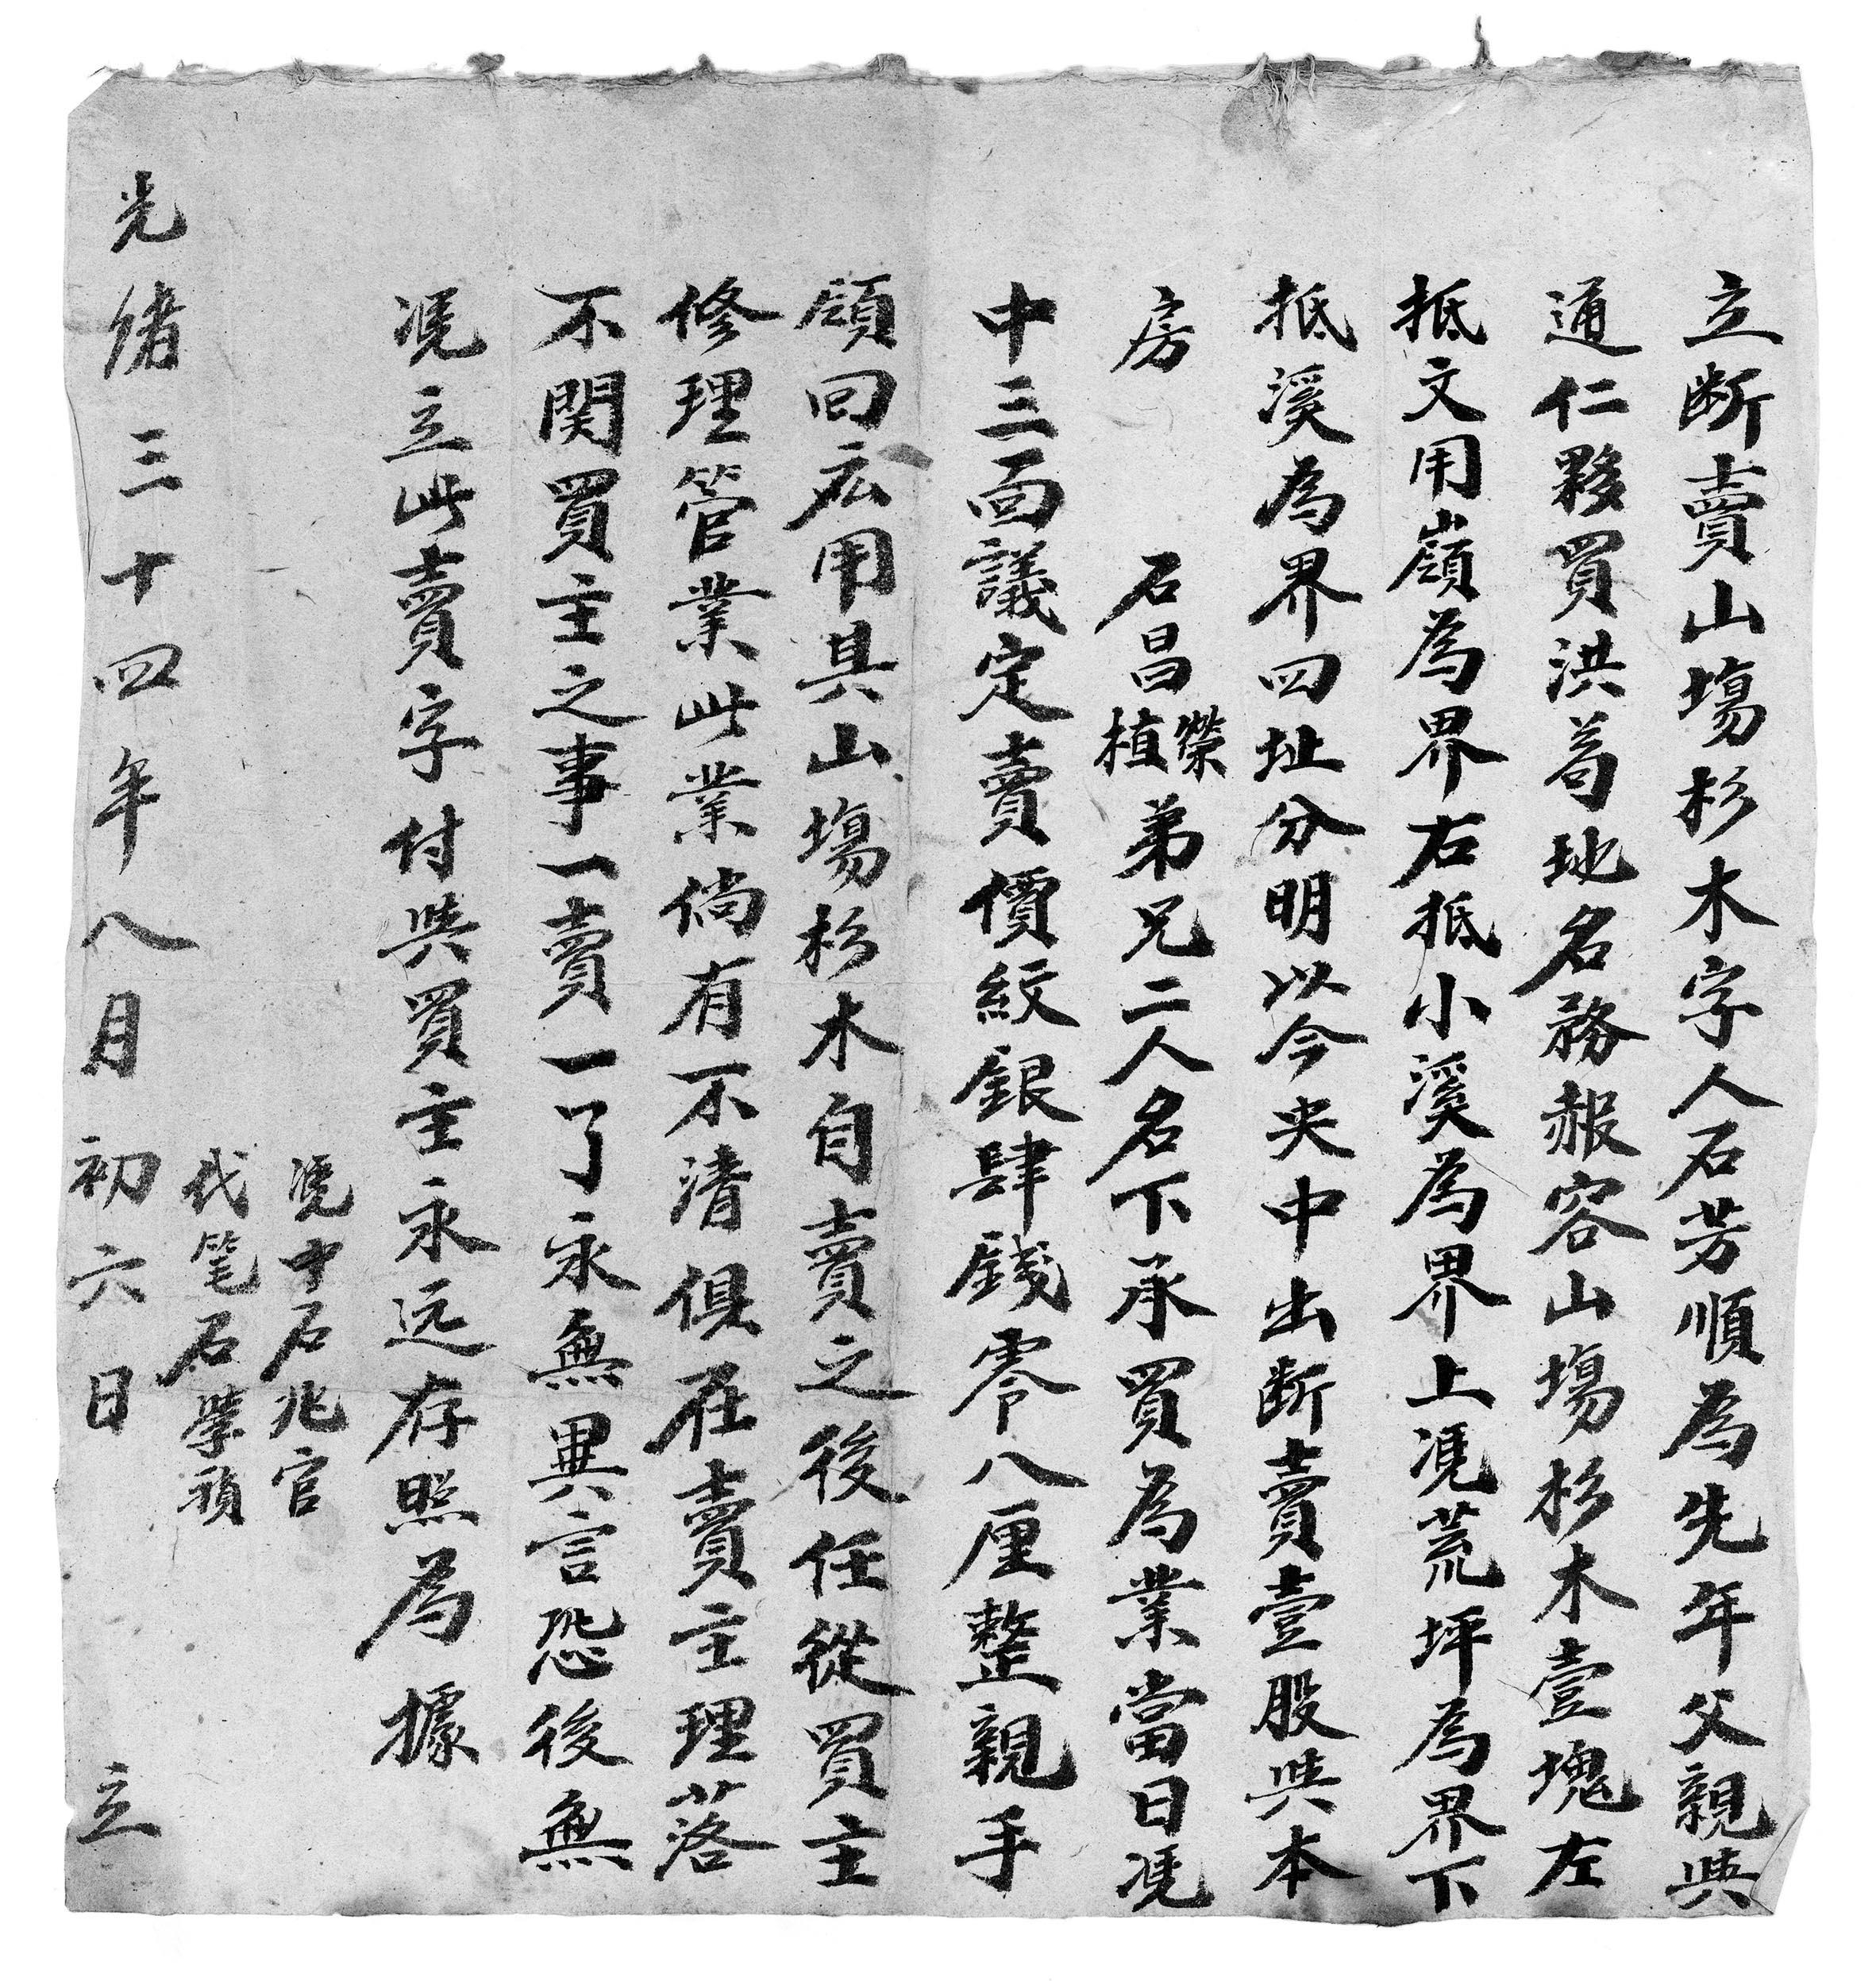 立断賣山塲杉木字人石芳順為先年父親與
通仁夥買洪苟地名務赧容山塲杉木壹塊左
抵文用嶺為界右抵小溪為界上凴荒坪為界下
抵溪為界四址分明以今央中出断賣壹股與本
房 石昌榮植弟兄二人名下承買為業當日凴
中三面議定賣價紋銀肆錢零八厘整親手
領回应用其山塲杉木自賣之後任從買主
修理管業此業倘有不清俱在賣主理落
不関買主之事一賣一了永無異言恐後無
凴立此賣字付與買主永远存照為據
凴中石兆官
代笔石學禎
光緒三十四年八月初六日 立